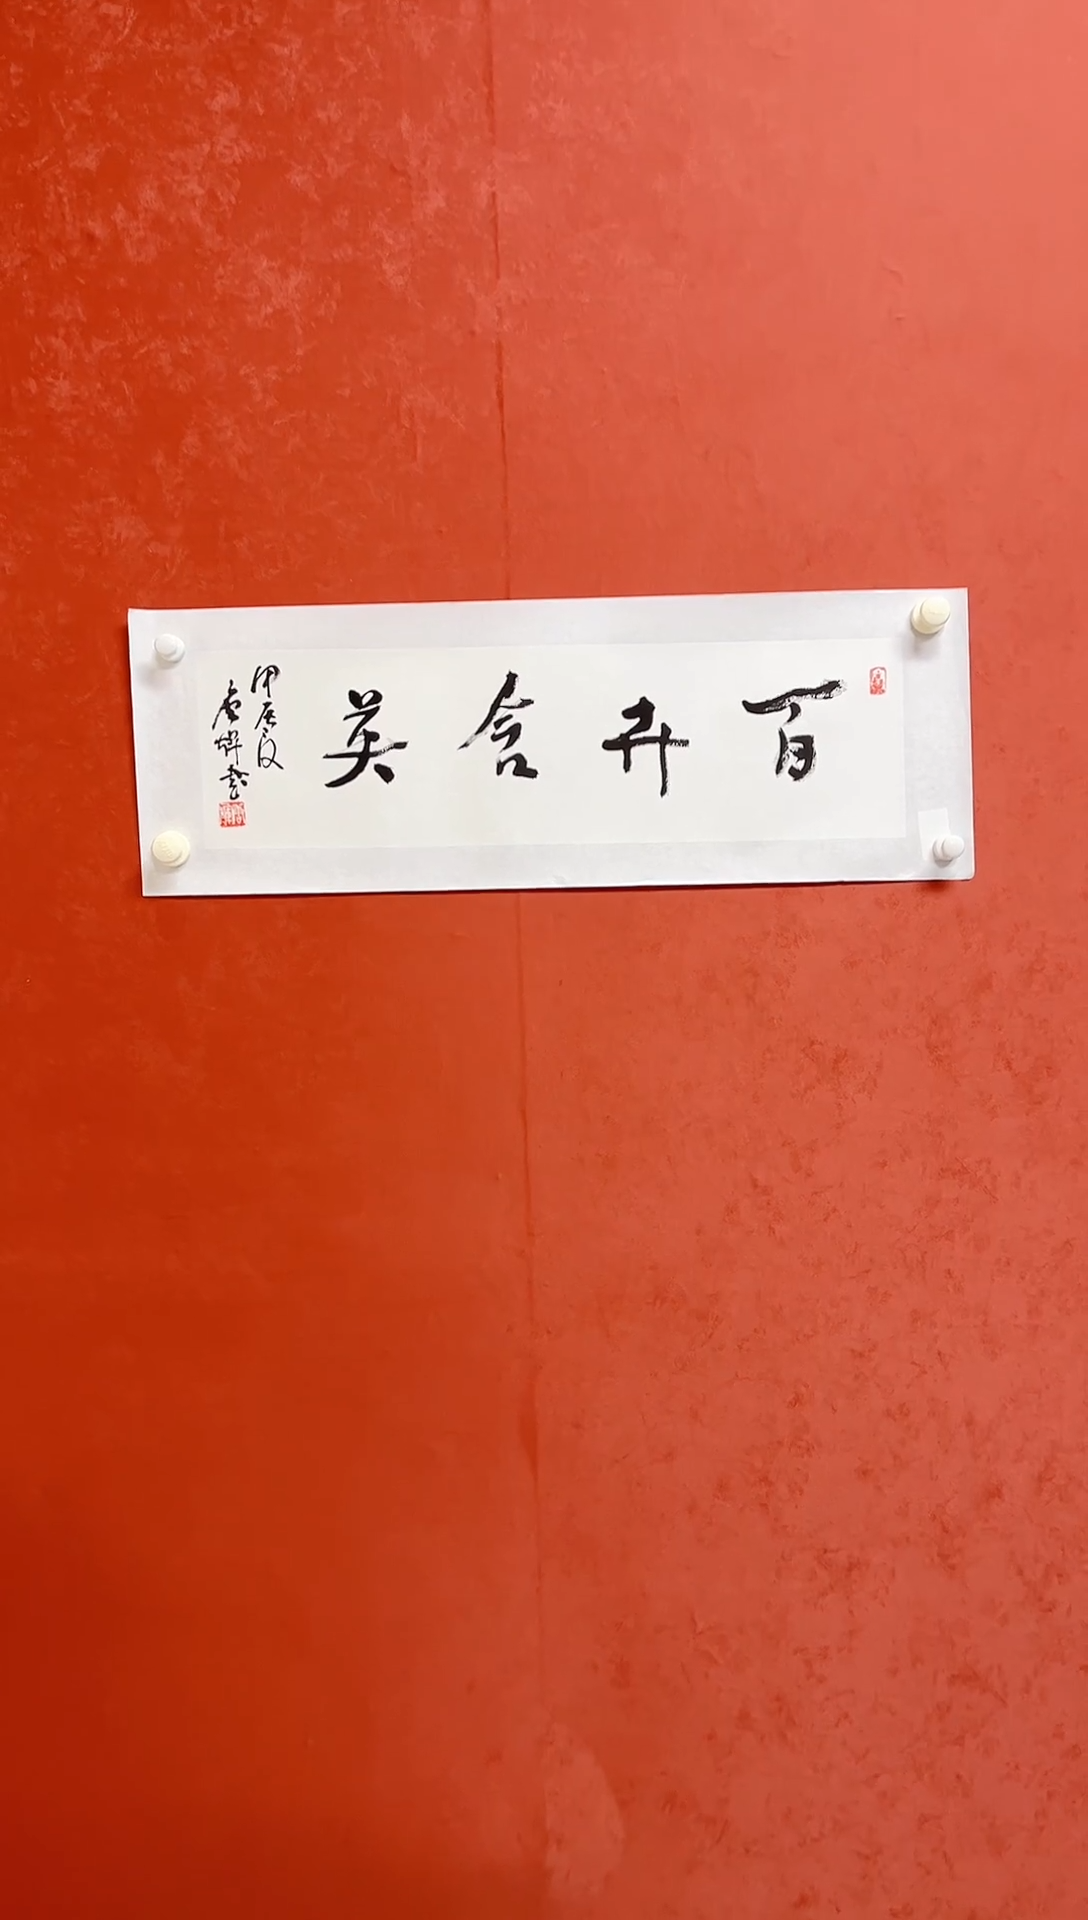 百卉含英
甲辰夏
书